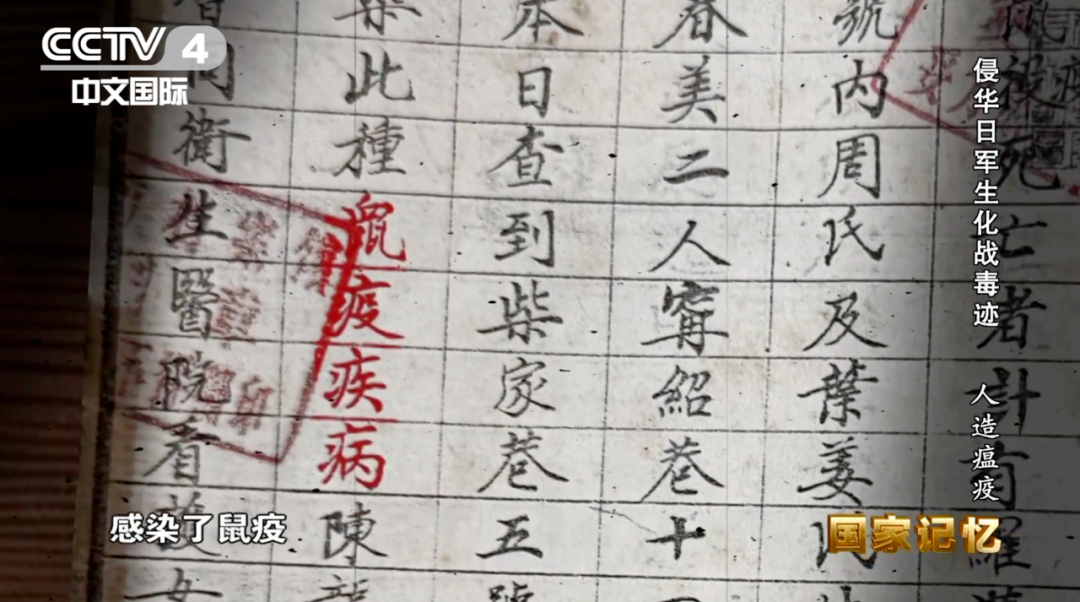 CCTV 4
中文国际
侵华日军生化战毒迹
人造瘟疫
死亡者計有羅
號內周氏及葉姜
春美二人甯紹巷十
本日查到柴家巷五號
染此種鼠疫疾病陳
同衛生醫院看
感染了鼠疫
国家记忆